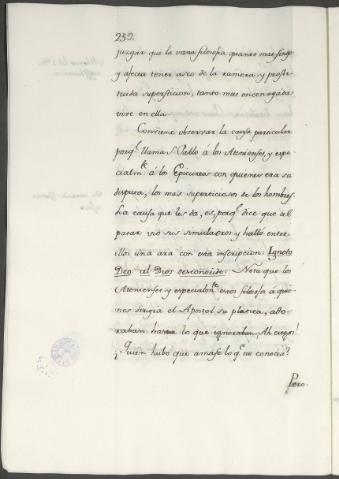 232.
juzgár que la vana filosofia, quanto mas finge
y afecta tener asco de la ramera, y prosti-
tuida supersticion, tanto mas encenagada
vive en ella.
Conviene observar la causa particular
porq.e llama S. Pablo á los Atenienses, y espe-
cialm.te á los Epicureos con quienes era su
disputa, los mas supersticiosos de los hombres.
La causa que les da, es, porq.e dice que al
pasar vio sus simulacros y halló entre
ellos una ara con esta inscripcion: Ignoto
Deo al Dios desconocido. Nota que los
Atenienses y especialm.te estos filosofos á quie-
nes dirigia el Apostol su platica, ado-
raban hasta lo que ignoraban. Ah ciegos!
¿Quien hubo que amase lo q.e no conocia?
Pero